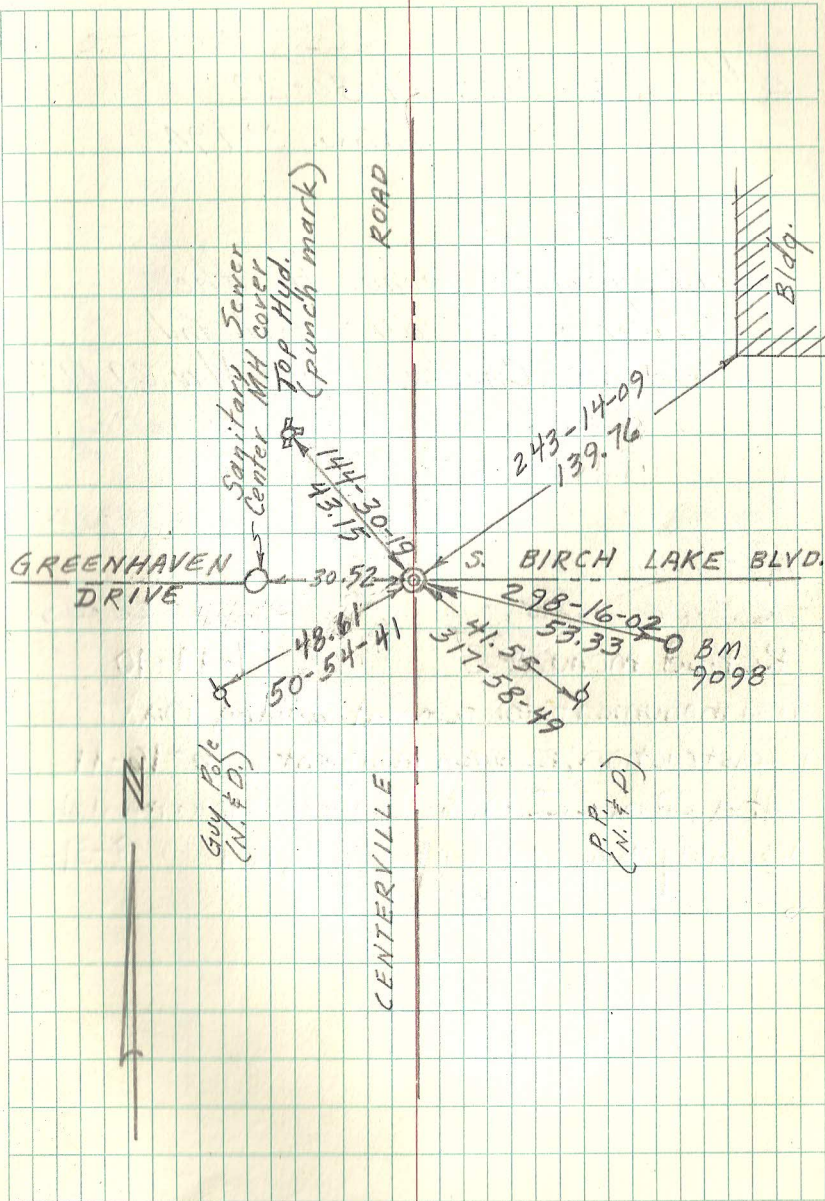 Sanitary Sewer
Center MH cover
Top Hyd.
(punch mark)
ROAD
Bldg.
243-14-09
139.76
144-30-19
43.15
GREENHAVEN
DRIVE
30.52
S. BIRCH LAKE BLVD.
298-16-02
53.33
BM
9098
48.61
50-54-41
41.55
317-58-49
N
Guy Pole
(N. & D.)
P.P.
(N. & D.)
CENTERVILLE